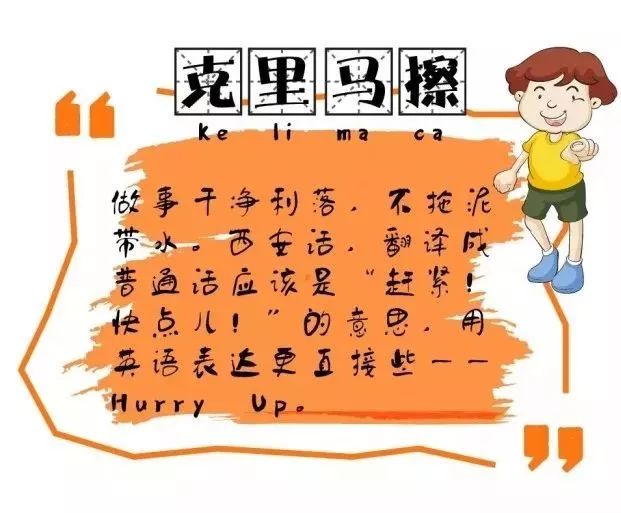 克里马擦
ke li ma ca
做事干净利落，不拖泥
带水。西安话，翻译成
普通话应该是“赶紧！
快点儿！”的意思，用
英语表达更直接些——
Hurry Up。